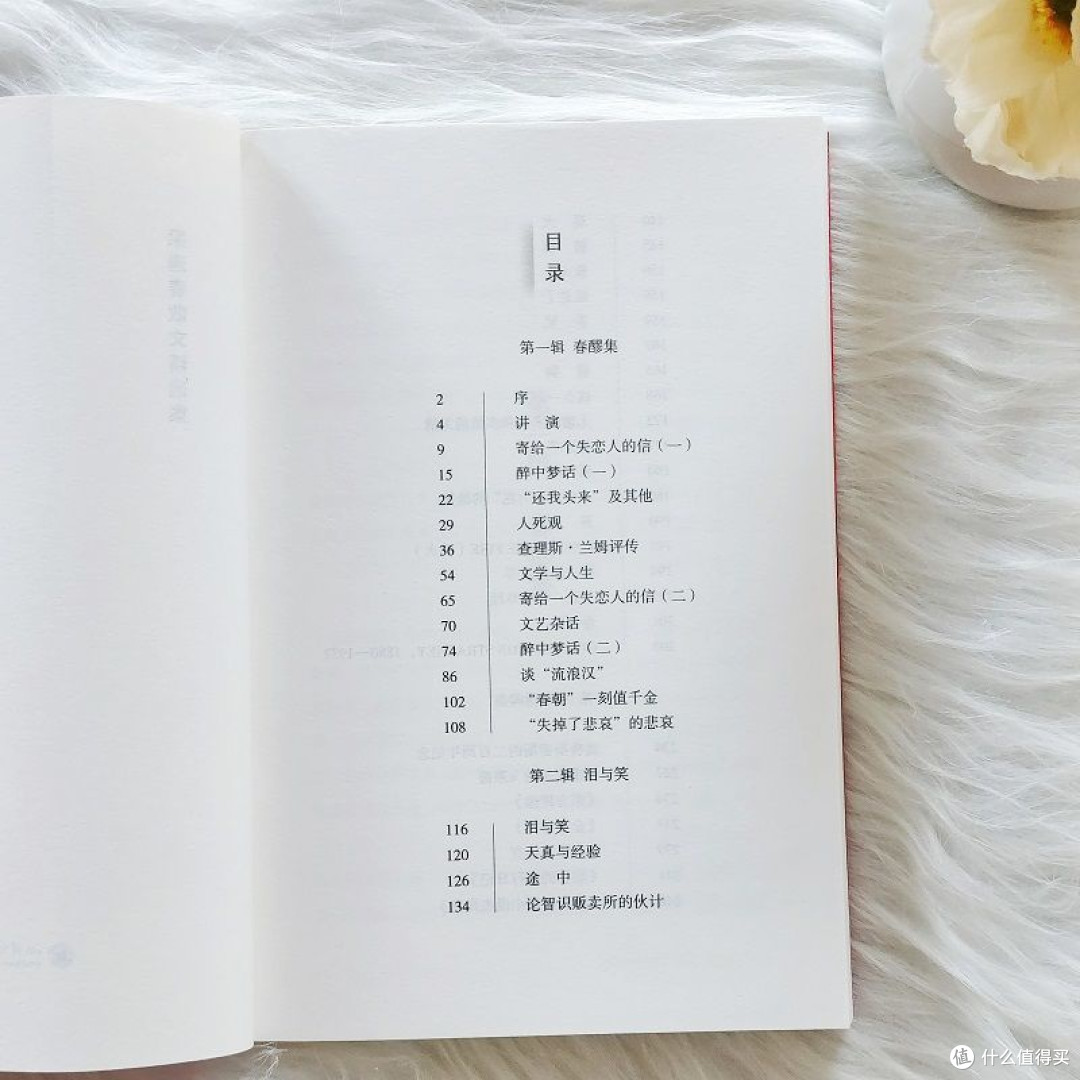 目
录
第一辑 春醪集
2 序
4 讲 演
9 寄给一个失恋人的信(一)
15 醉中梦话(一)
22 “还我头来”及其他
29 人死观
36 查理斯·兰姆评传
54 文学与人生
65 寄给一个失恋人的信(二)
70 文艺杂话
74 醉中梦话(二)
86 谈“流浪汉”
102 “春朝”一刻值千金
108 “失掉了悲哀”的悲哀
第二辑 泪与笑
116 泪与笑
120 天真与经验
126 途 中
134 论智识贩卖所的伙计
值 什么值得买